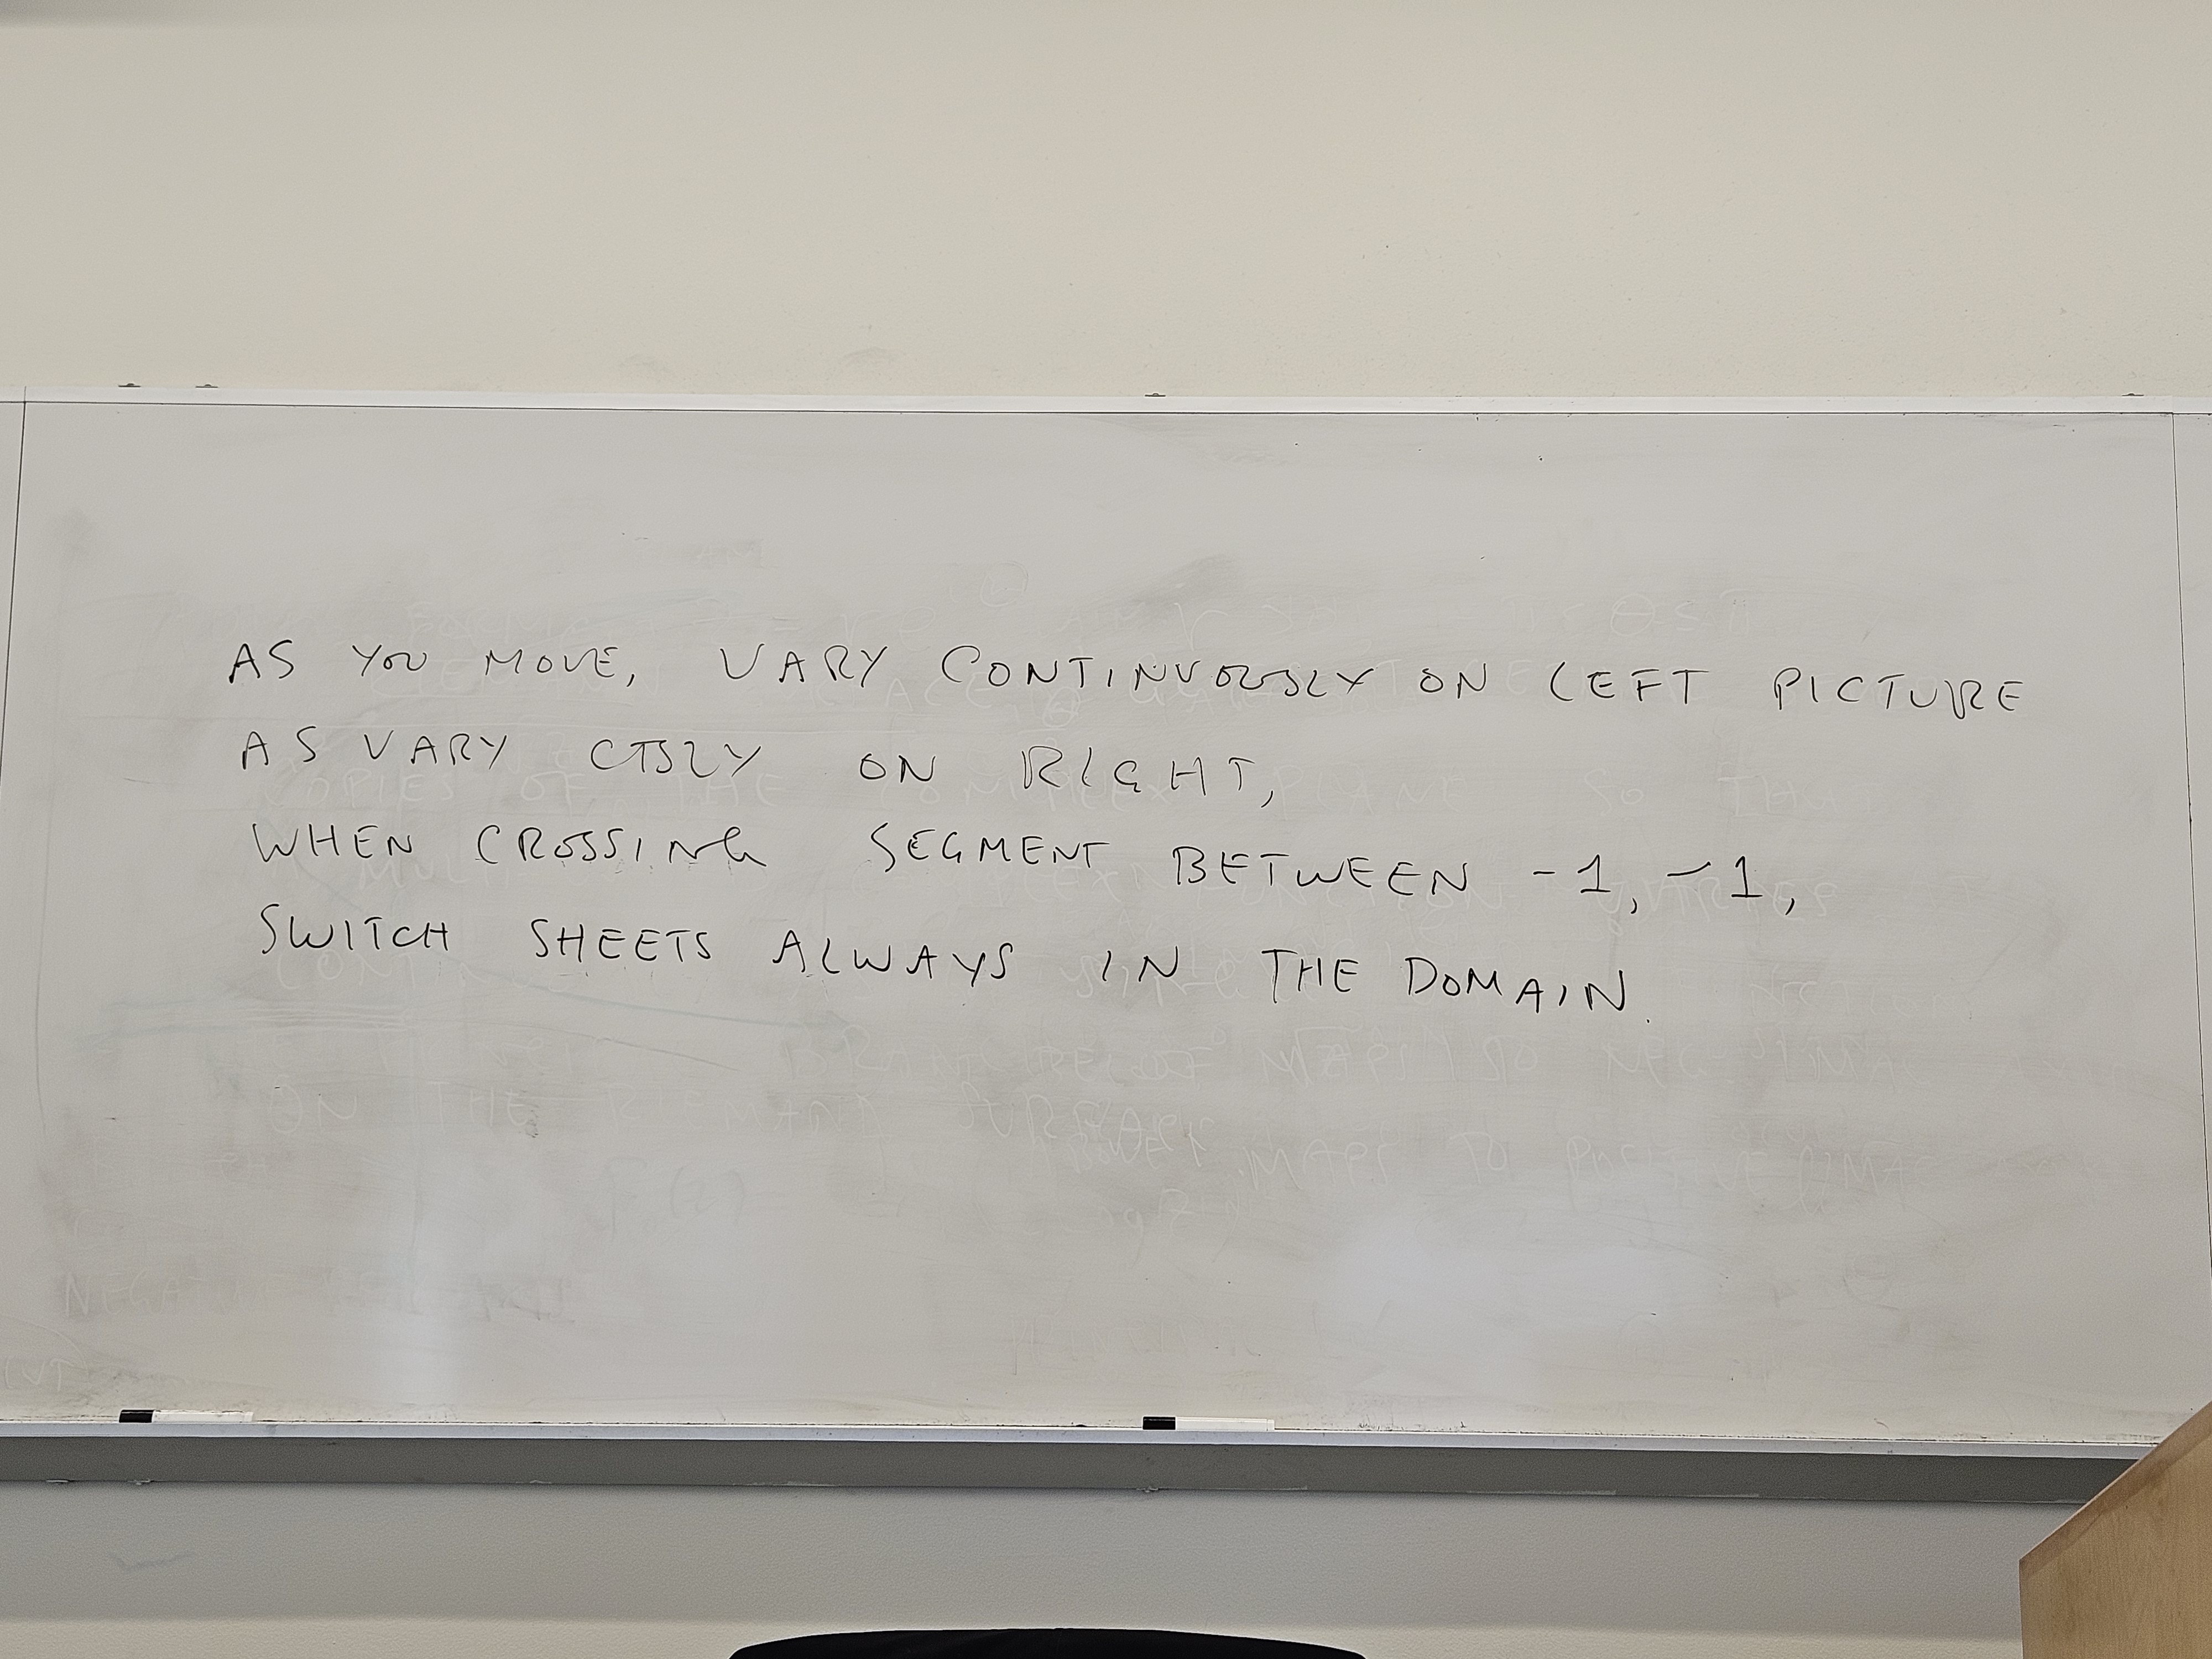 AS YOU MOVE, VARY CONTINUOUSLY ON LEFT PICTURE
AS VARY CTSLY ON RIGHT,
WHEN CROSSING SEGMENT BETWEEN -1, -1,
SWITCH SHEETS ALWAYS IN THE DOMAIN.